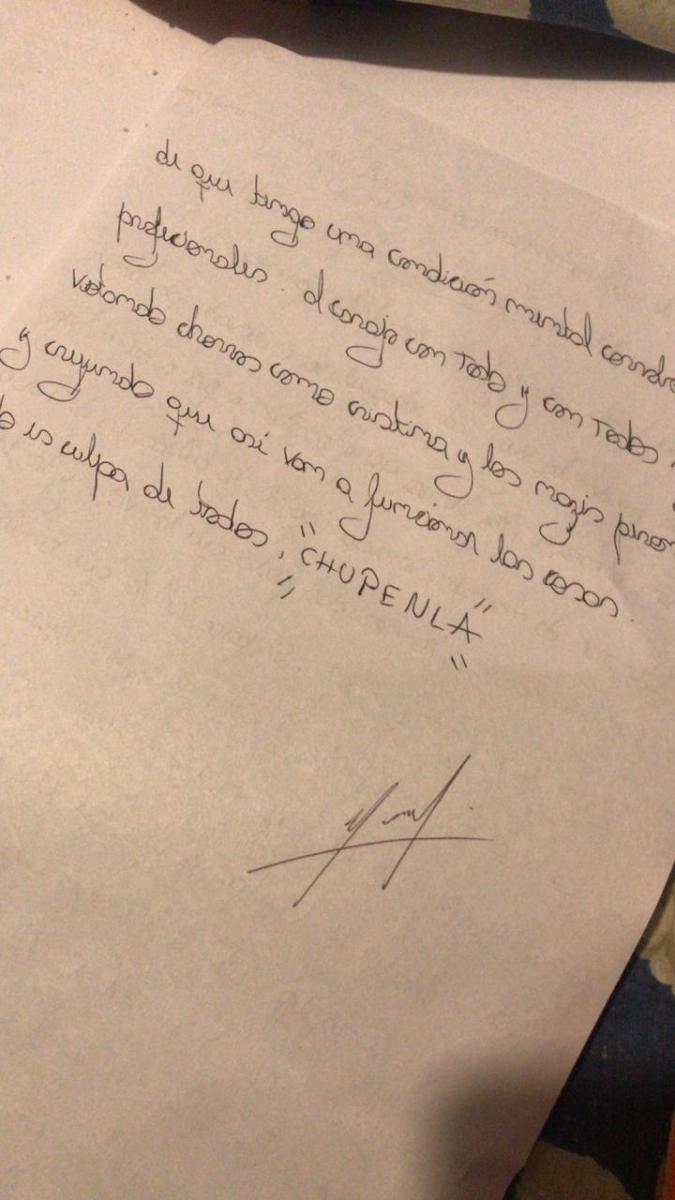 de que tengo una condición mental
profesionales. al carajo con todo y con todos
votando chorros como cristina y los nazis
y creyendo que así van a funcionar las cosas.
es culpa de todos, "CHUPENLA"